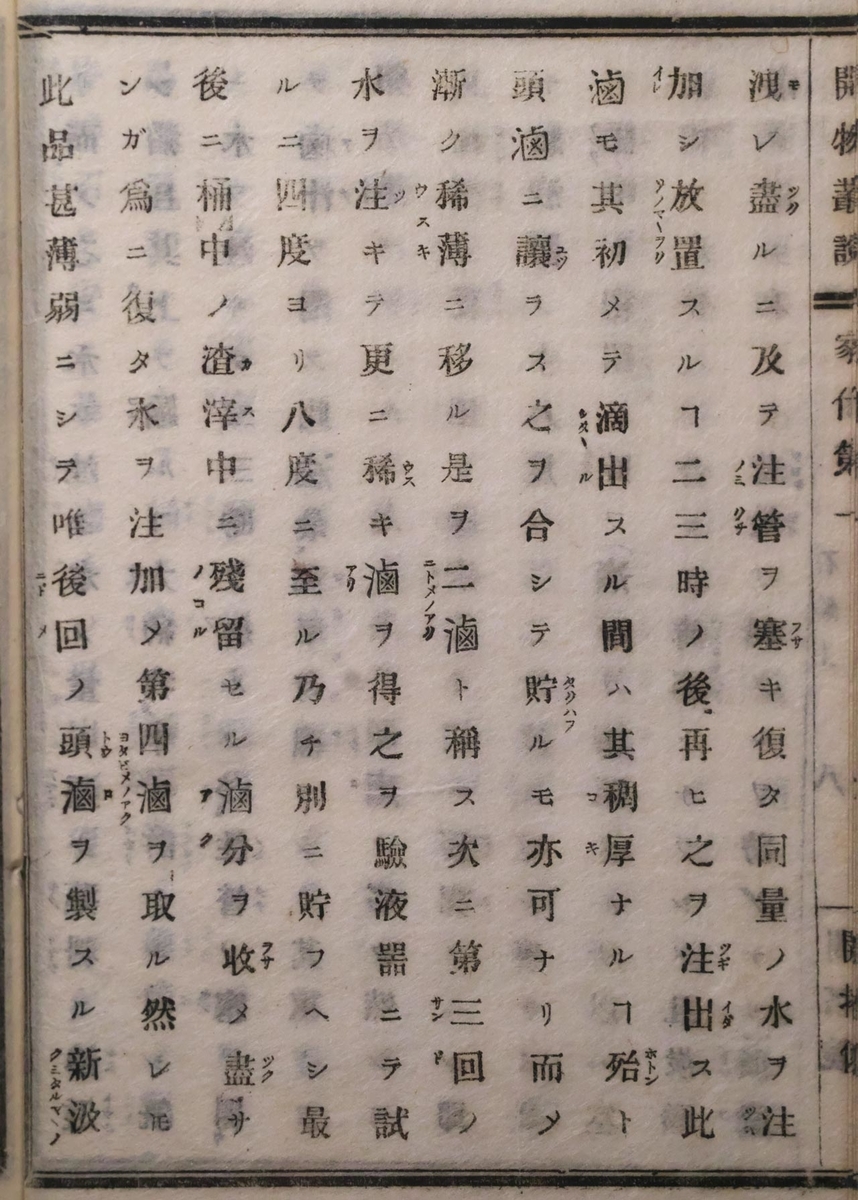 洩レ盡ルニ及テ注管ヲ塞キ復タ同量ノ水ヲ注
加シ放置スルヿ二三時ノ後再ヒ之ヲ注出ス此
滷モ其初メテ滴出スル間ハ其稠厚ナルヿ殆ト
頭滷ニ讓ラス之ヲ合シテ貯ルモ亦可ナリ而メ
漸ク稀薄ニ移ル是ヲ二滷ト稱ス次ニ第三回ノ
水ヲ注キテ更ニ稀キ滷ヲ得之ヲ驗液器ニテ試
ルニ四度ヨリ八度ニ至ル乃チ別ニ貯フヘシ最
後ニ桶中ノ渣滓中ニ殘留セル滷分ヲ收メ盡サ
ンガ爲ニ復タ水ヲ注加メ第四滷ヲ取ル然レ𪜈
此品甚薄弱ニシテ唯後回ノ頭滷ヲ製スル新汲